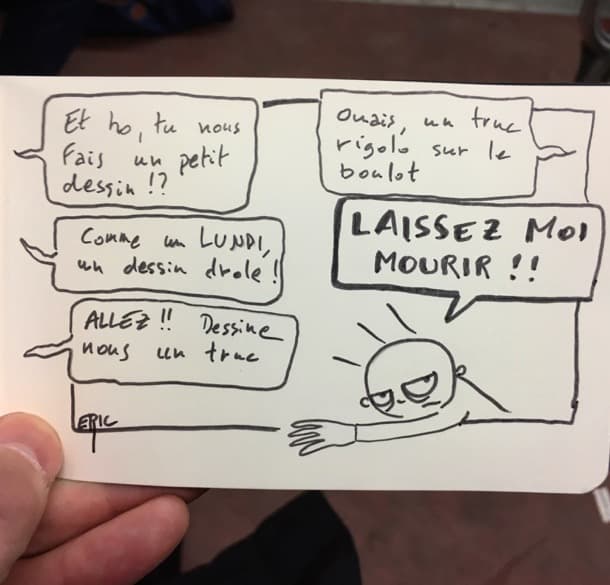 Et ho, tu nous
fais un petit
dessin !?
Ouais, un truc
rigolo sur le
boulot
Comme un LUNDI,
un dessin drole !
LAISSEZ MOI
MOURIR !!
ALLEZ !! Dessine
nous un truc
ERIC